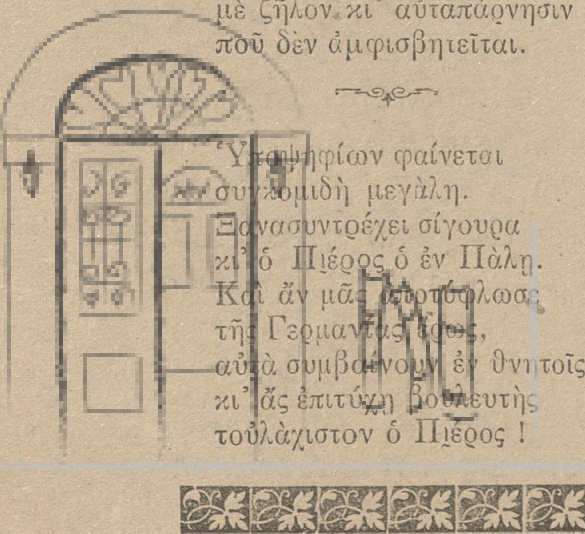 μὲ ζῆλον κι᾽ αὐταπάρνησιν
ποῦ δὲν ἀμφισβητεῖται.
Ὑποψηφίων φαίνεται
συγκομιδὴ μεγάλη.
Ξανασυντρέχει σίγουρα
κι᾽ ὁ Πιέρος ὁ ἐν Πάλῃ.
Καὶ ἂν μᾶς ἀποτύφλωσε
τῆς Γερμανίας ἔρως,
αὐτὰ συμβαίνουν ἐν θνητοῖς
κι᾽ ἂς ἐπιτύχῃ βουλευτὴς
τοὐλάχιστον ὁ Πιέρος !